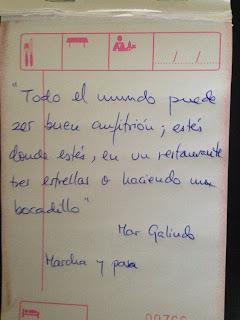 / /
"Todo el mundo puede
ser buen anfitrión; estés
donde estés, en un restaurante
tres estrellas o haciendo un
bocadillo"
Mar Galindo
Marcha y pasa